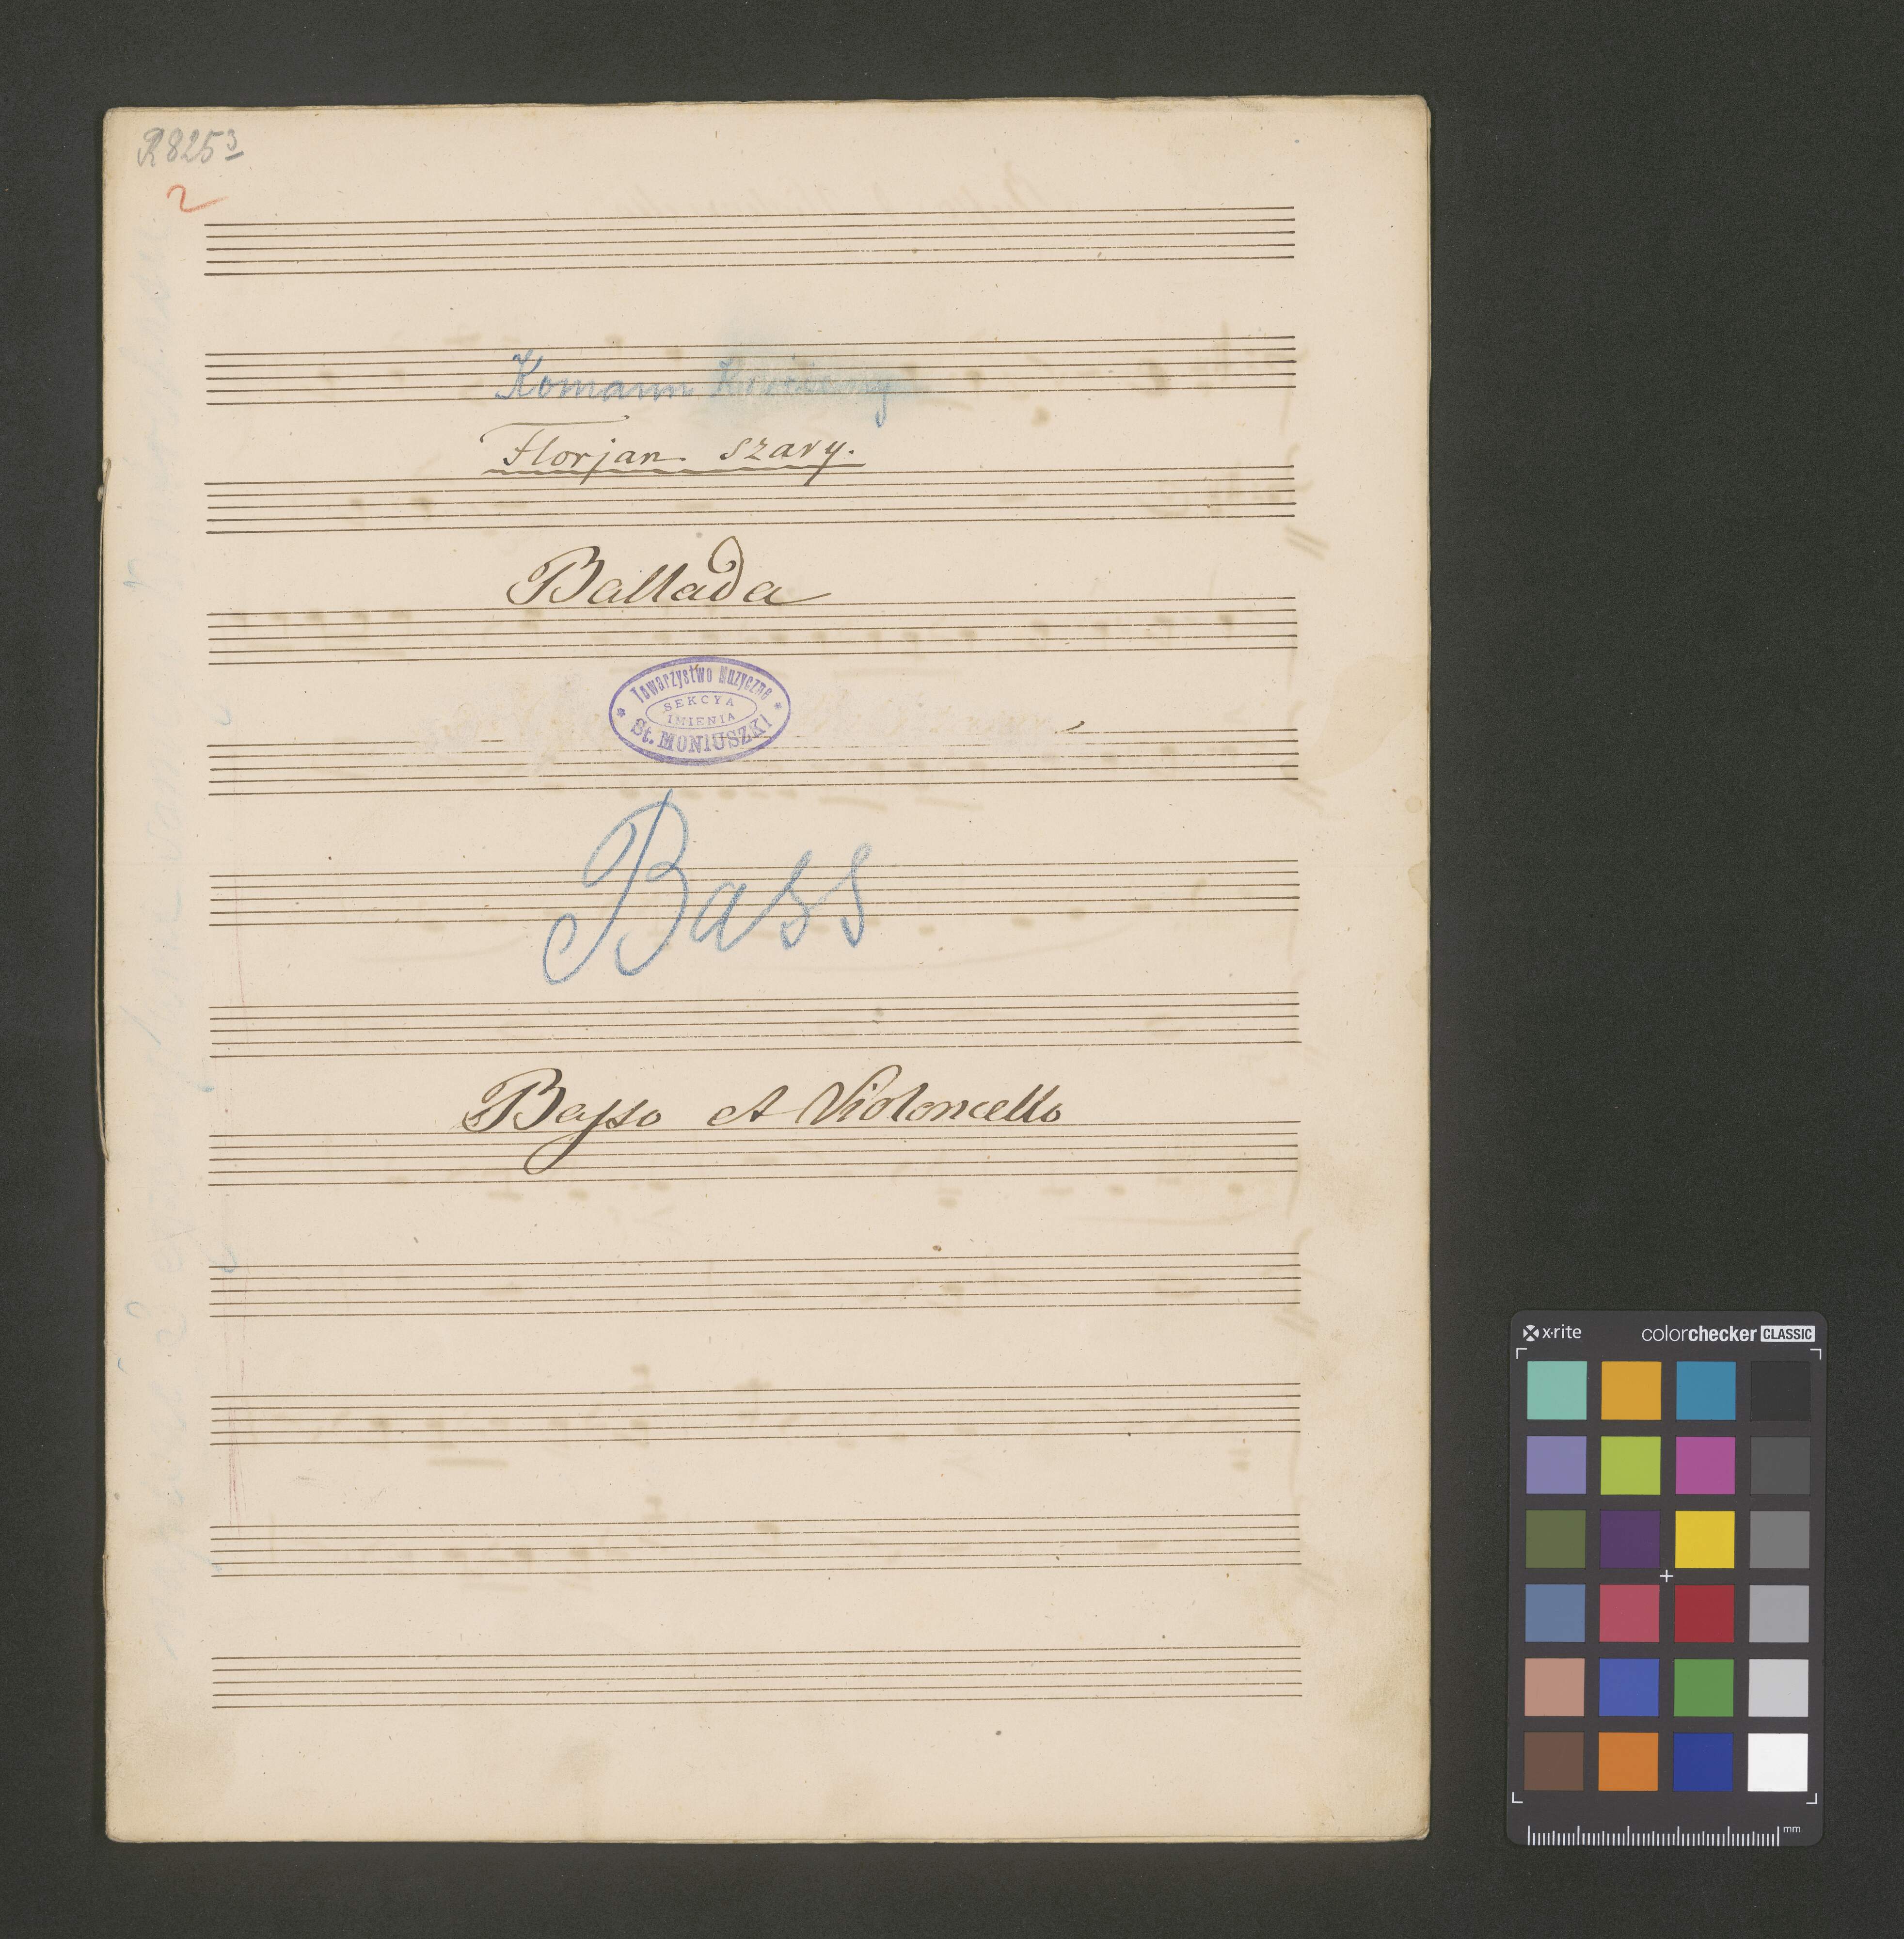 R8253
2
Komann
Florjan Szary.
Ballada
Towarzystwo Muzyczne
SEKCYA
IMIENIA
St. MONIUSZKI
Bass
Basso et Violoncello
x·rite colorchecker CLASSIC
mm